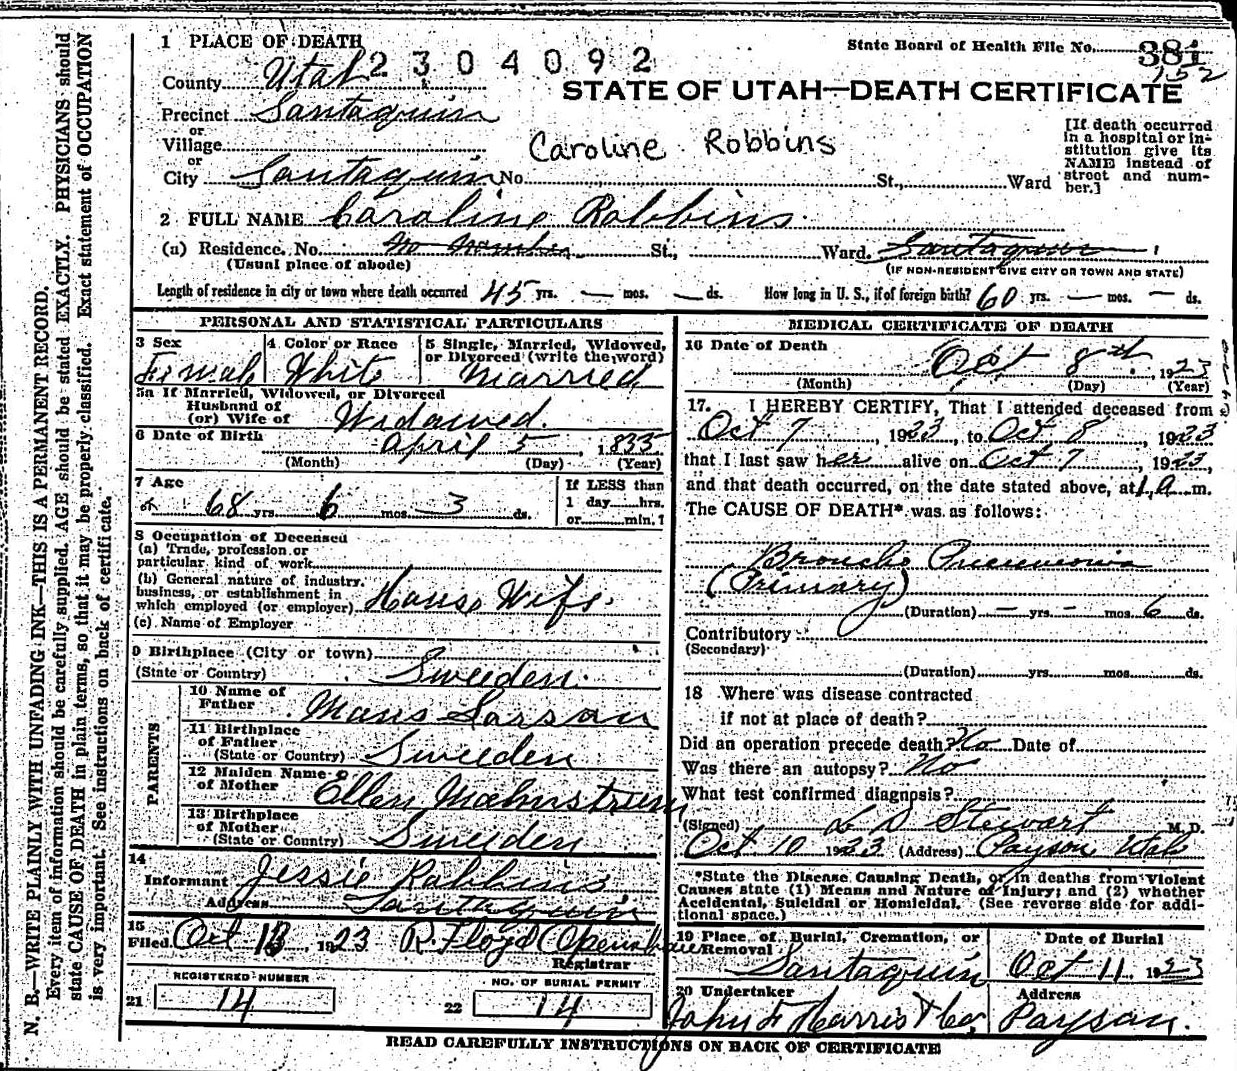 1 PLACE OF DEATH
State Board of Health File No. 381
152
2304092
County Utah
STATE OF UTAH—DEATH CERTIFICATE
Precinct Santaquin
or
Village
Caroline Robbins
or
City Santaquin No. St., Ward
[If death occurred
in a hospital or in-
stitution give its
NAME instead of
street and num-
ber.]
2 FULL NAME Caroline Robbins
(a) Residence. No. No Number St., Ward. Santaquin
(Usual place of abode)
(IF NON-RESIDENT GIVE CITY OR TOWN AND STATE)
Length of residence in city or town where death occurred 45 yrs. — mos. — ds. How long in U. S., if of foreign birth? 60 yrs. — mos. — ds.
PERSONAL AND STATISTICAL PARTICULARS
3 Sex
Female
4 Color or Race
White
5 Single, Married, Widowed,
or Divorced (write the word)
Married
5a If Married, Widowed, or Divorced
Husband of
(or) Wife of Widowed.
6 Date of Birth
April 5, 1855
(Month) (Day) (Year)
7 Age
68 yrs. 6 mos. 3 ds.
If LESS than
1 day hrs.
or min. ?
8 Occupation of Deceased
(a) Trade, profession or
particular kind of work
(b) General nature of industry,
business, or establishment in
which employed (or employer) House Wife.
(c) Name of Employer
9 Birthplace (City or town)
(State or Country) Sweeden.
PARENTS
10 Name of
Father Mons Larson
11 Birthplace
of Father
(State or Country) Sweeden
12 Maiden Name
of Mother Ellen Malmstrum
13 Birthplace
of Mother
(State or Country) Sweeden
14
Informant Jessie Robbins
Address Santaquin
15
Filed Oct 13 1923 R. Floyd Openshaw
Registrar
REGISTERED NUMBER
21 14
NO. OF BURIAL PERMIT
22 14
MEDICAL CERTIFICATE OF DEATH
16 Date of Death
Oct 8th, 1923
(Month) (Day) (Year)
17. I HEREBY CERTIFY, That I attended deceased from
Oct 7, 1923, to Oct 8, 1923
that I last saw her alive on Oct 7, 1923,
and that death occurred, on the date stated above, at 1 a m.
The CAUSE OF DEATH* was as follows:
Broncho Pneumonia
(Primary)
(Duration) — yrs. — mos. 6 ds.
Contributory
(Secondary)
(Duration) yrs. mos. ds.
18 Where was disease contracted
if not at place of death?
Did an operation precede death? No Date of
Was there an autopsy? No
What test confirmed diagnosis?
(Signed) L D Stewart M. D.
Oct 10 1923 (Address) Payson Utah
*State the Disease Causing Death, or in deaths from Violent
Causes state (1) Means and Nature of Injury; and (2) whether
Accidental, Suicidal or Homicidal. (See reverse side for addi-
tional space.)
19 Place of Burial, Cremation, or
Removal
Santaquin
Date of Burial
Oct 11 1923
20 Undertaker
John F Harris & Co
Address
Payson.
READ CAREFULLY INSTRUCTIONS ON BACK OF CERTIFICATE
N. B.—WRITE PLAINLY WITH UNFADING INK—THIS IS A PERMANENT RECORD.
Every item of information should be carefully supplied. AGE should be stated EXACTLY. PHYSICIANS should
state CAUSE OF DEATH in plain terms, so that it may be properly classified. Exact statement of OCCUPATION
is very important. See instructions on back of certificate.